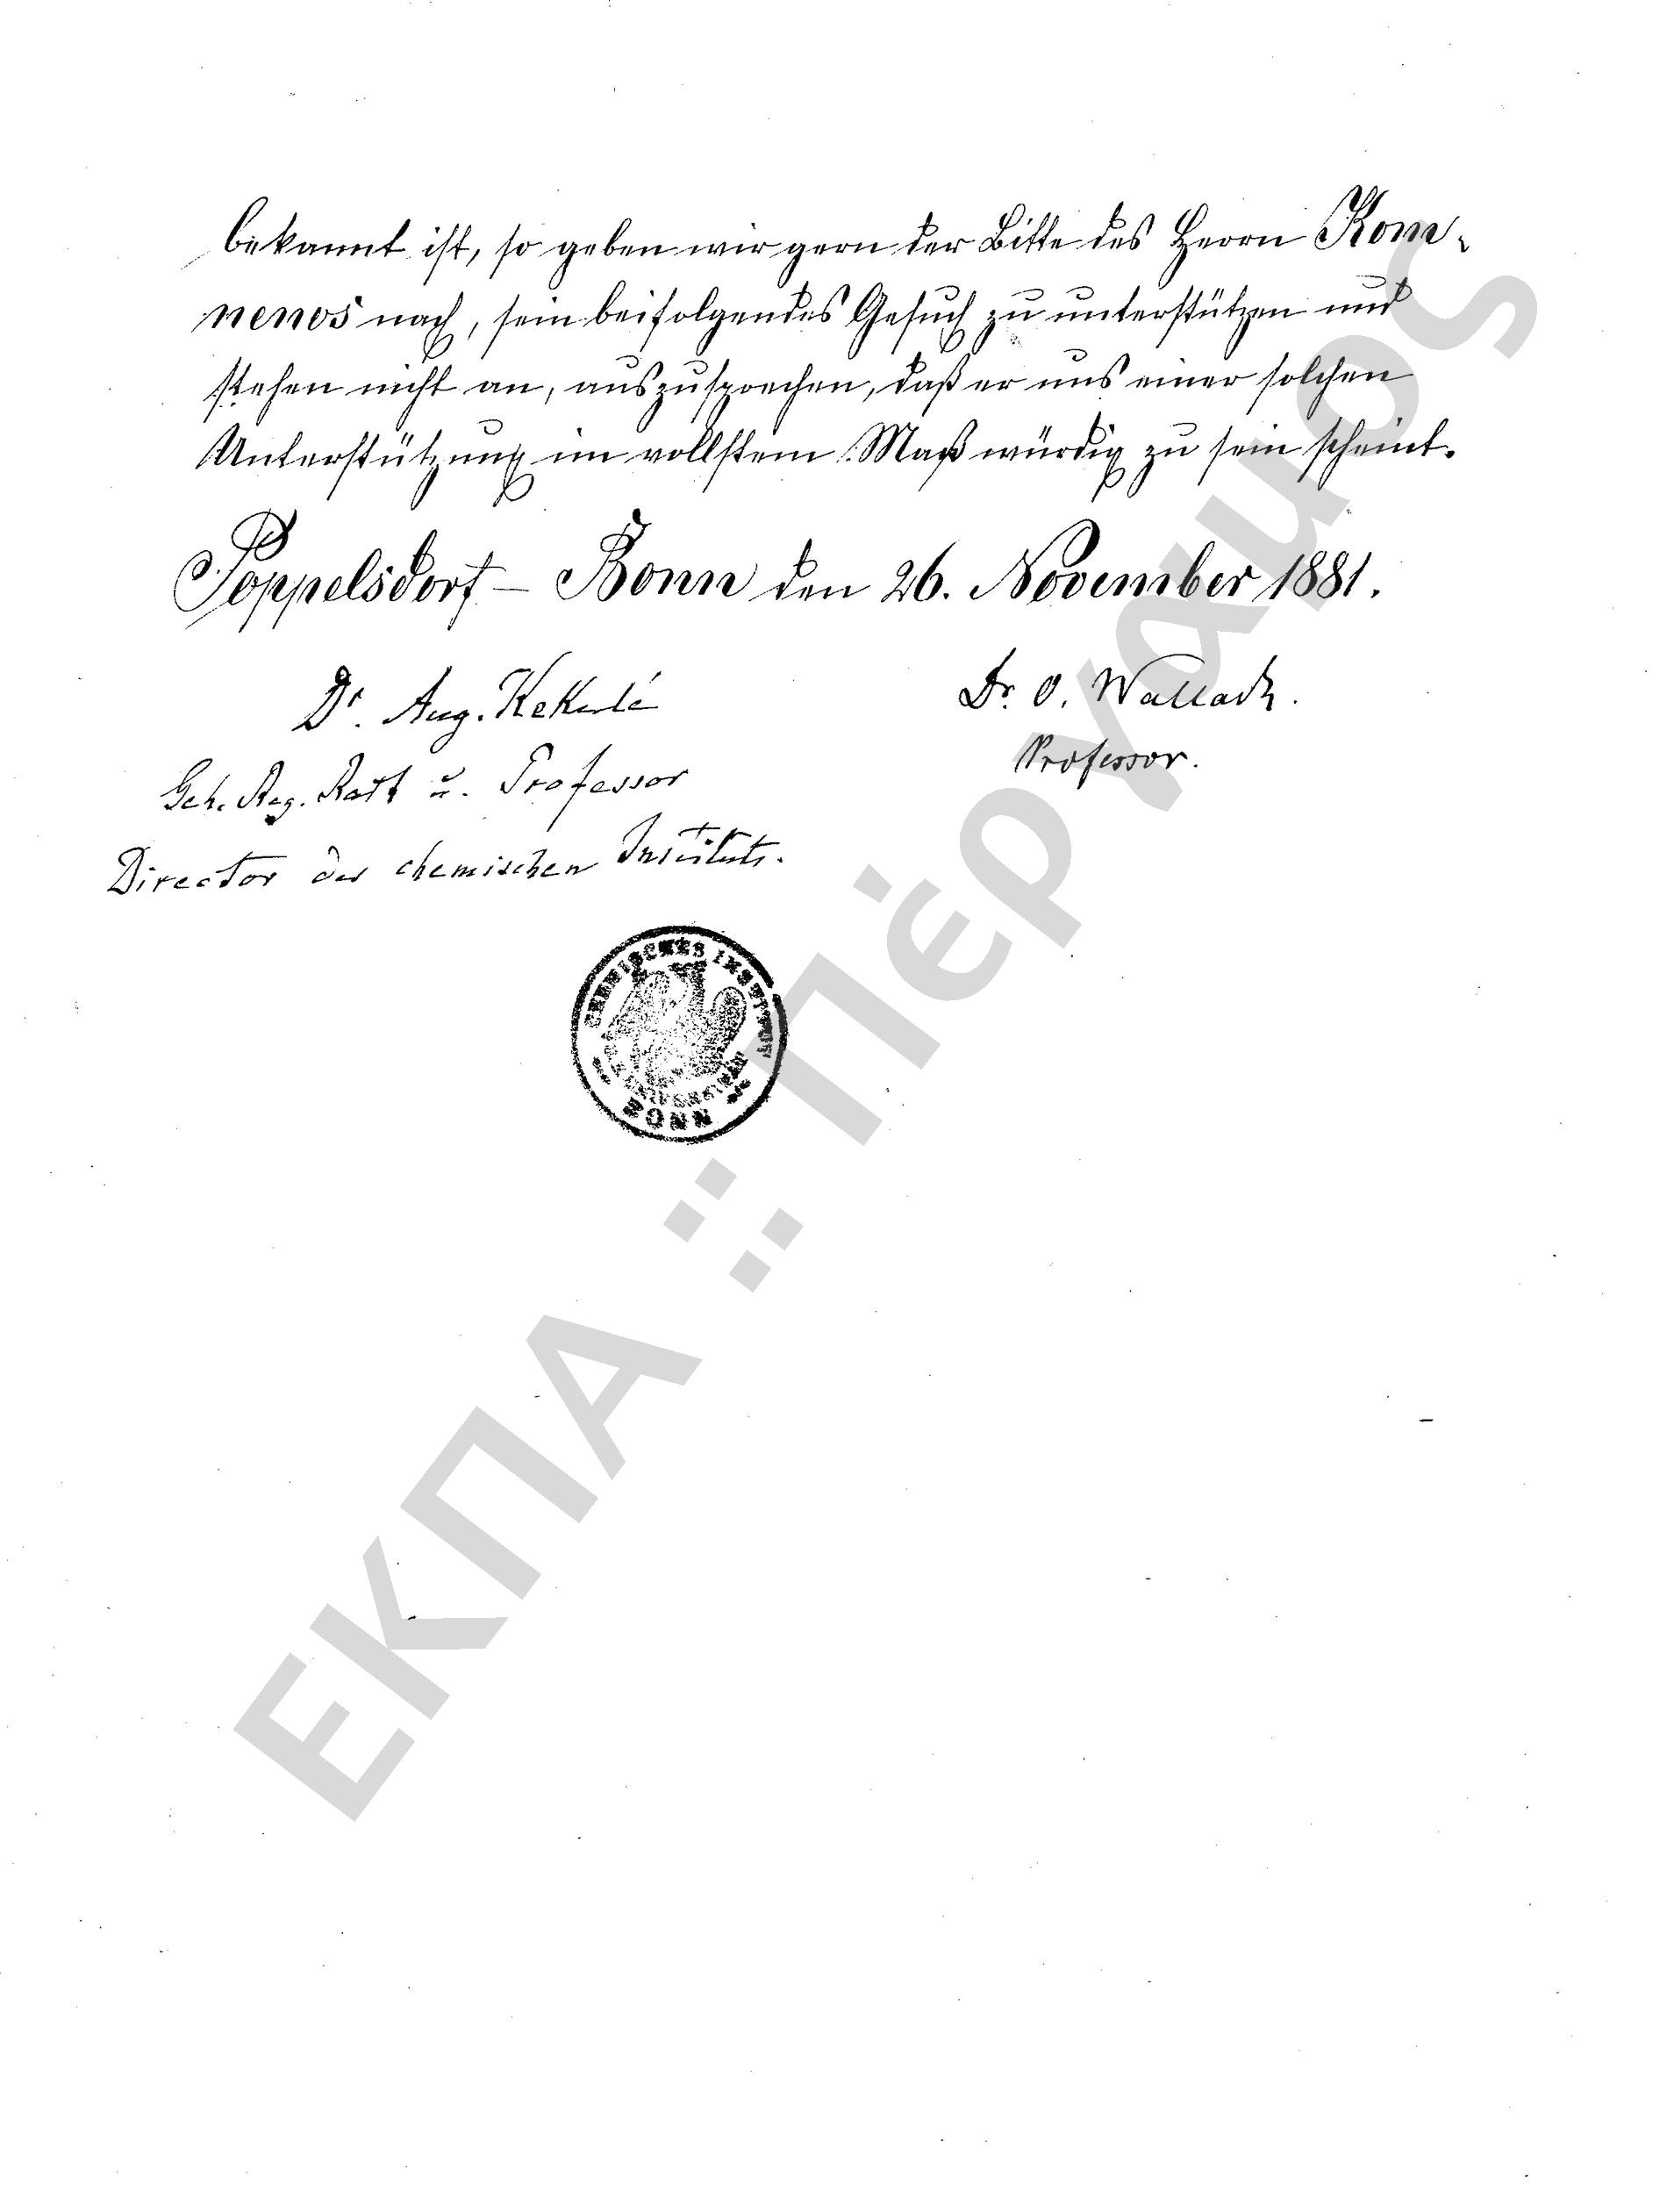 bekannt ist, so geben wir gern der Bitte des Herrn Kom-
nenos nach, sein beifolgendes Gesuch zu unterstützen und
stehen nicht an, auszusprechen, daß er uns einer solchen
Unterstützung im vollstem Maß würdig zu sein scheint.
Poppelsdorf – Bonn den 26. November 1881.
Dr. Aug. Kekulé
Geh. Reg. Rath u. Professor
Director des chemischen Instituts.
Dr. O. Wallach.
Professor.
CHEMISCHES INSTITUT
UNIVERSITÄT
BONN
ΕΚΠΑ :: Πέργαμος